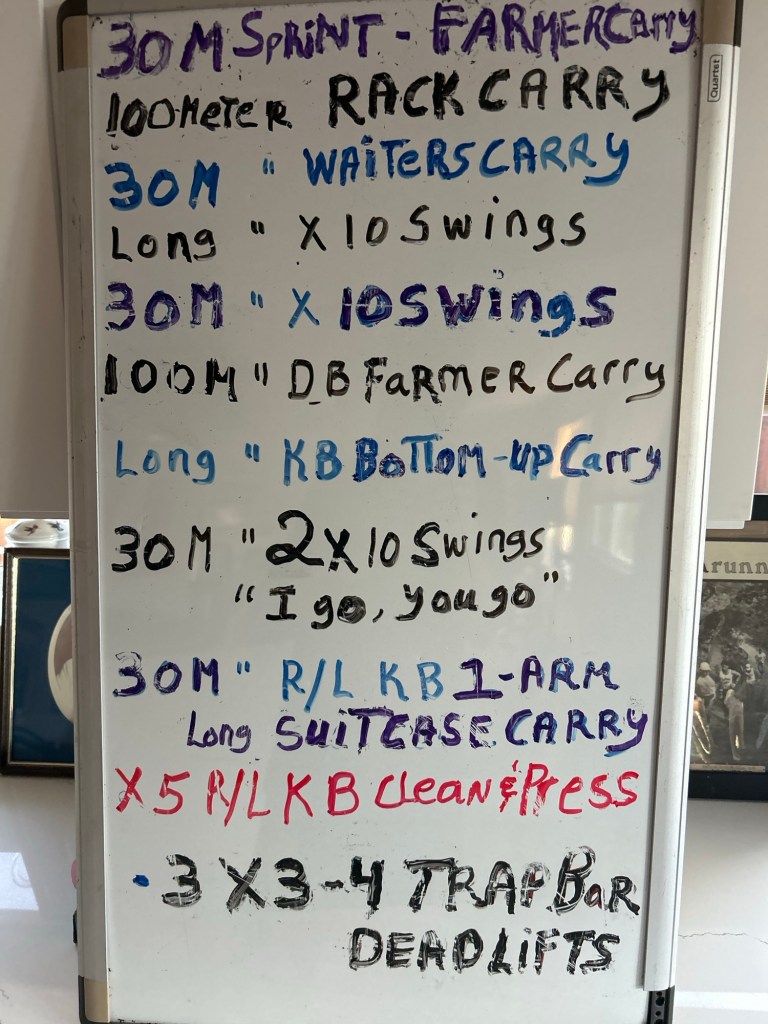 30M SPRINT - FARMERCARRY
100METER RACK CARRY
30M " WAiTeRS CARRY
Long " X 10 Swings
30M " X 10 Swings
100M " DB FaRMER Carry
Long " KB BoTTOM-up Carry
30M " 2X10 Swings
"I go, you go"
30M " R/L KB 1-ARM
Long SuiTCASE CARRY
X5 R/L KB Clean & Press
• 3 X 3-4 TRAP BaR
DEADLiFTS
Quartet
runn